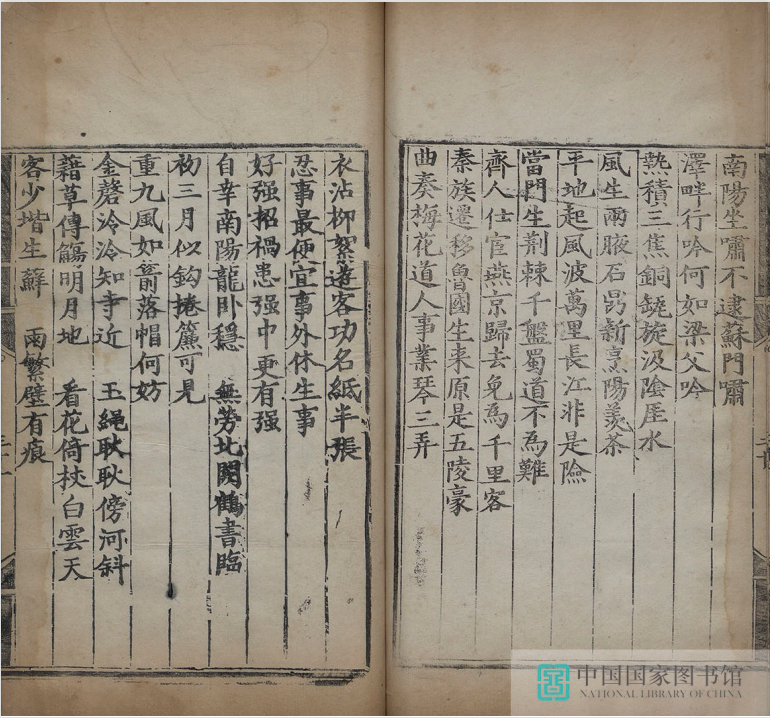 南陽坐嘯不逮蘇門嘯
澤畔行吟何如梁父吟
熱積三焦銅鐃旋汲陰厓水
風生兩腋石鼎新烹陽羨茶
平地起風波萬里長江非是險
當門生荆棘千盤蜀道不為難
齊人仕宦燕京歸去免為千里客
秦族遷移魯國生来原是五陵豪
曲奏梅花道人事業琴三弄
衣沾柳絮遊客功名紙半張
忍事最便宜事外休生事
好强招禍患强中更有强
自幸南陽龍卧穩 無勞北闕鶴書臨
初三月似鈎捲簾可見
重九風如箭落帽何妨
金磬泠泠知寺近 玉繩耿耿傍河斜
藉草傳觴明月地 看花倚杖白雲天
客少堦生蘚 雨繁壁有痕
中国国家图书馆
NATIONAL LIBRARY OF CHINA